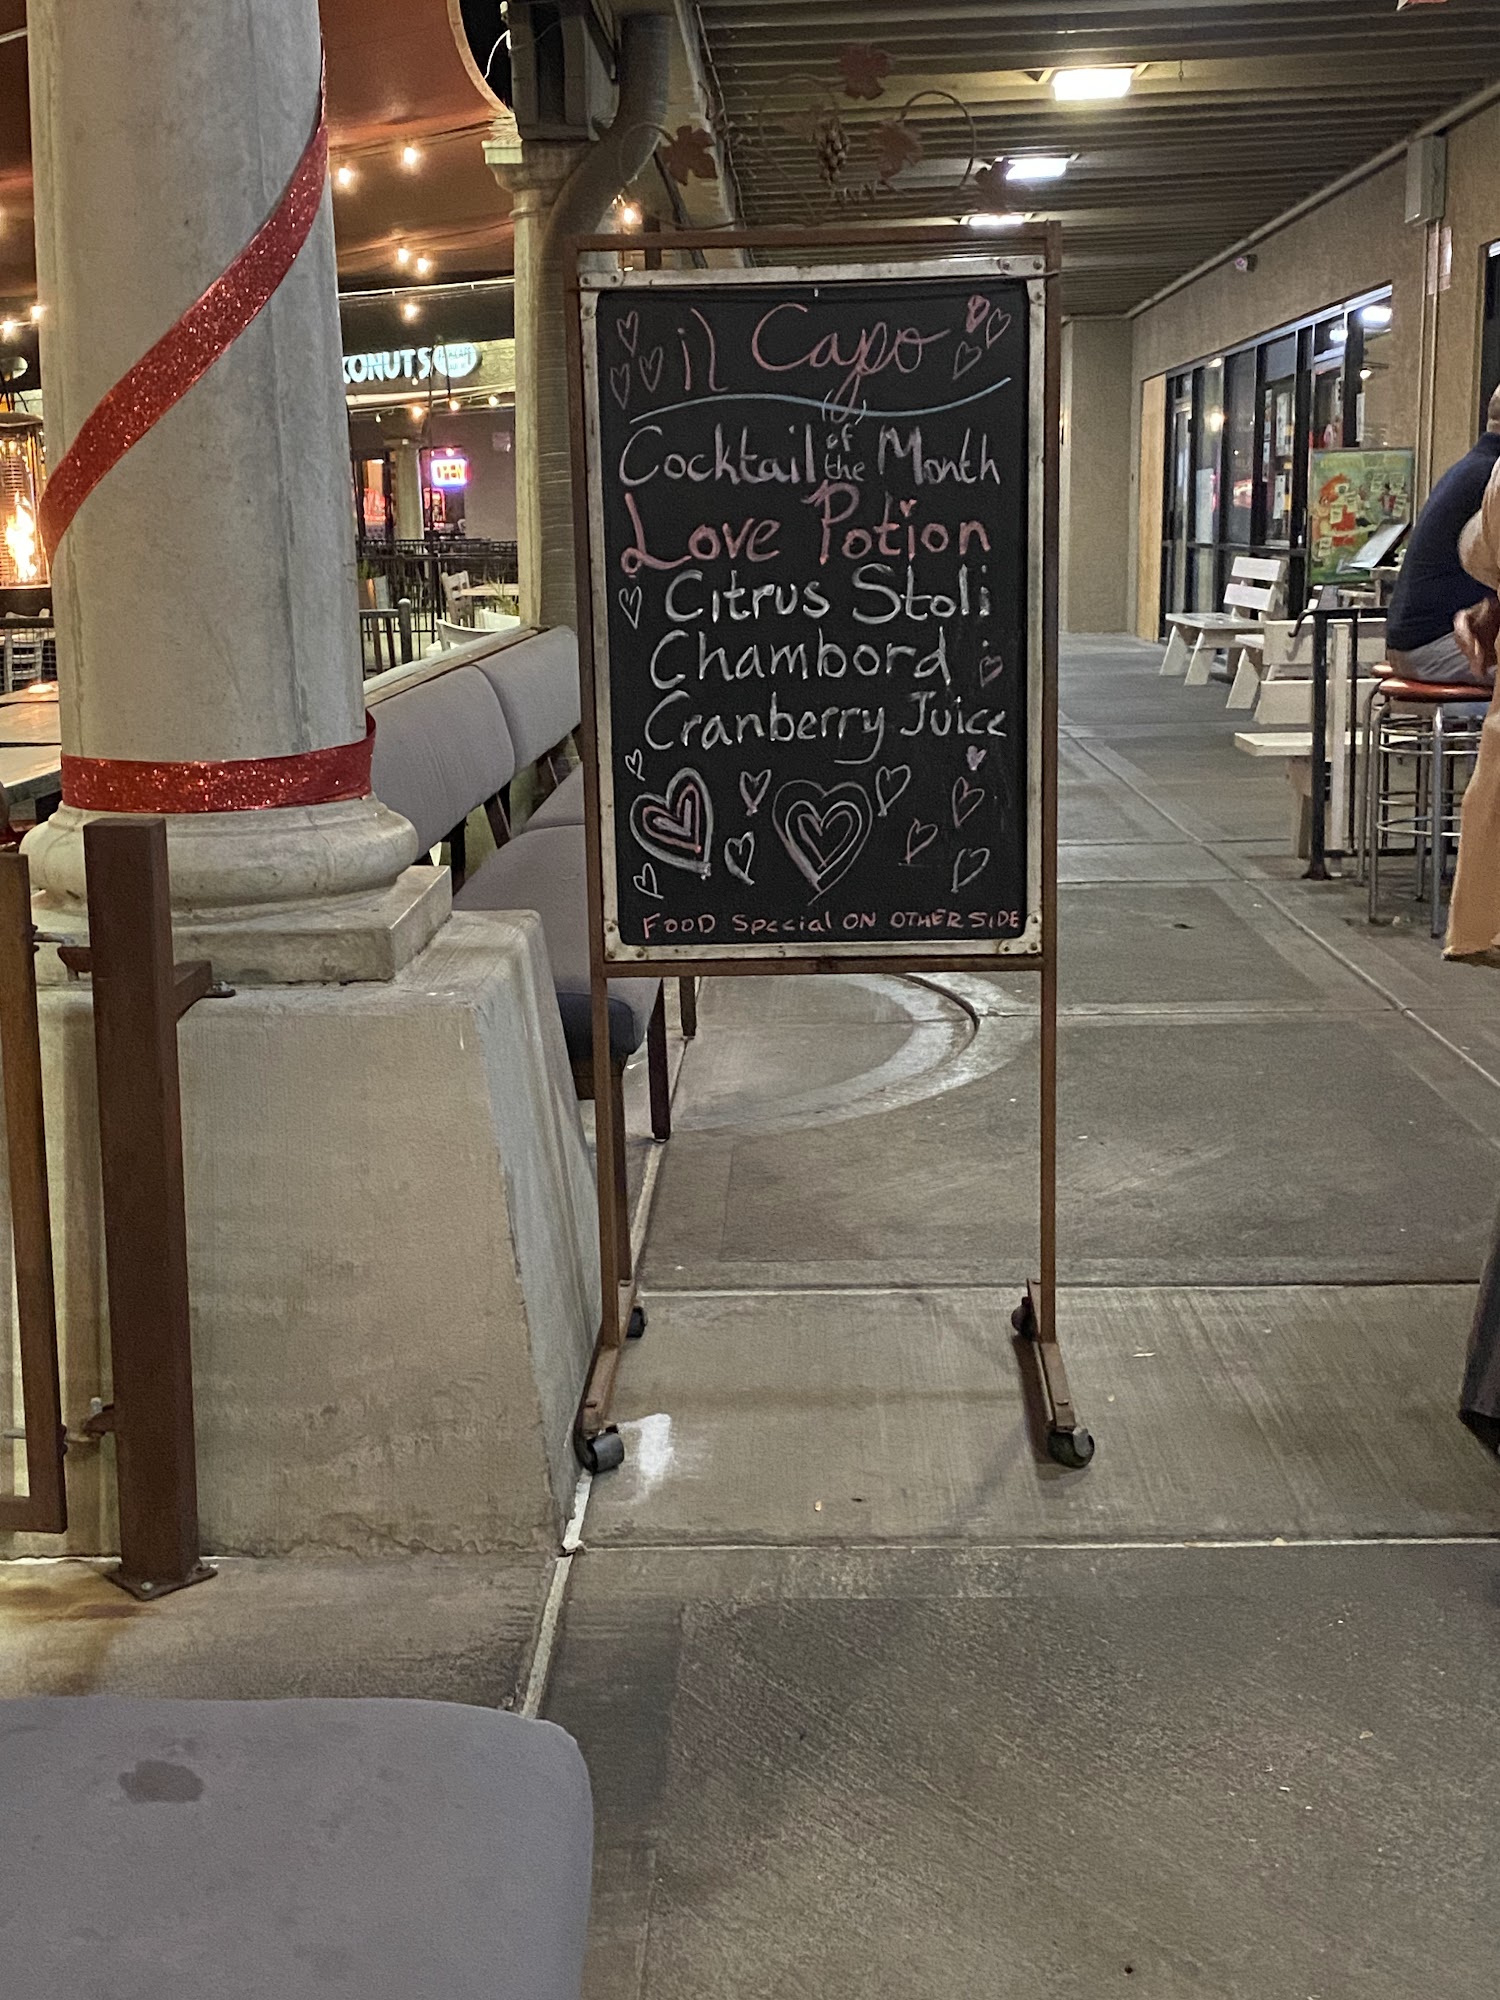 il Capo
Cocktail of the Month
Love Potion
Citrus Stoli
Chambord
Cranberry Juice
FOOD Special ON OTHER SIDE
OPEN